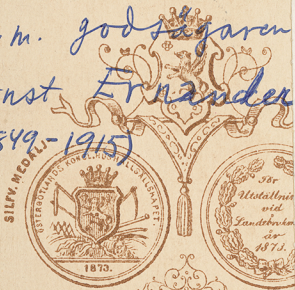 m. godsägaren
nst Ernander
1849-1915)
SILFV. MEDALJ
ÖSTERGÖTLANDS KONGL. HUSHÅLLSSÄLLSKAPET.
1873.
För
Utställnin
vid
Landtbruksm
år
1873.